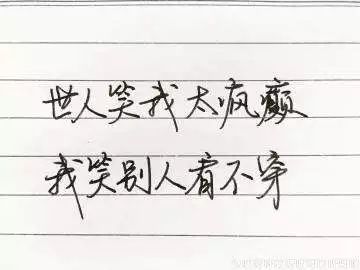 世人笑我太疯癫
我笑别人看不穿